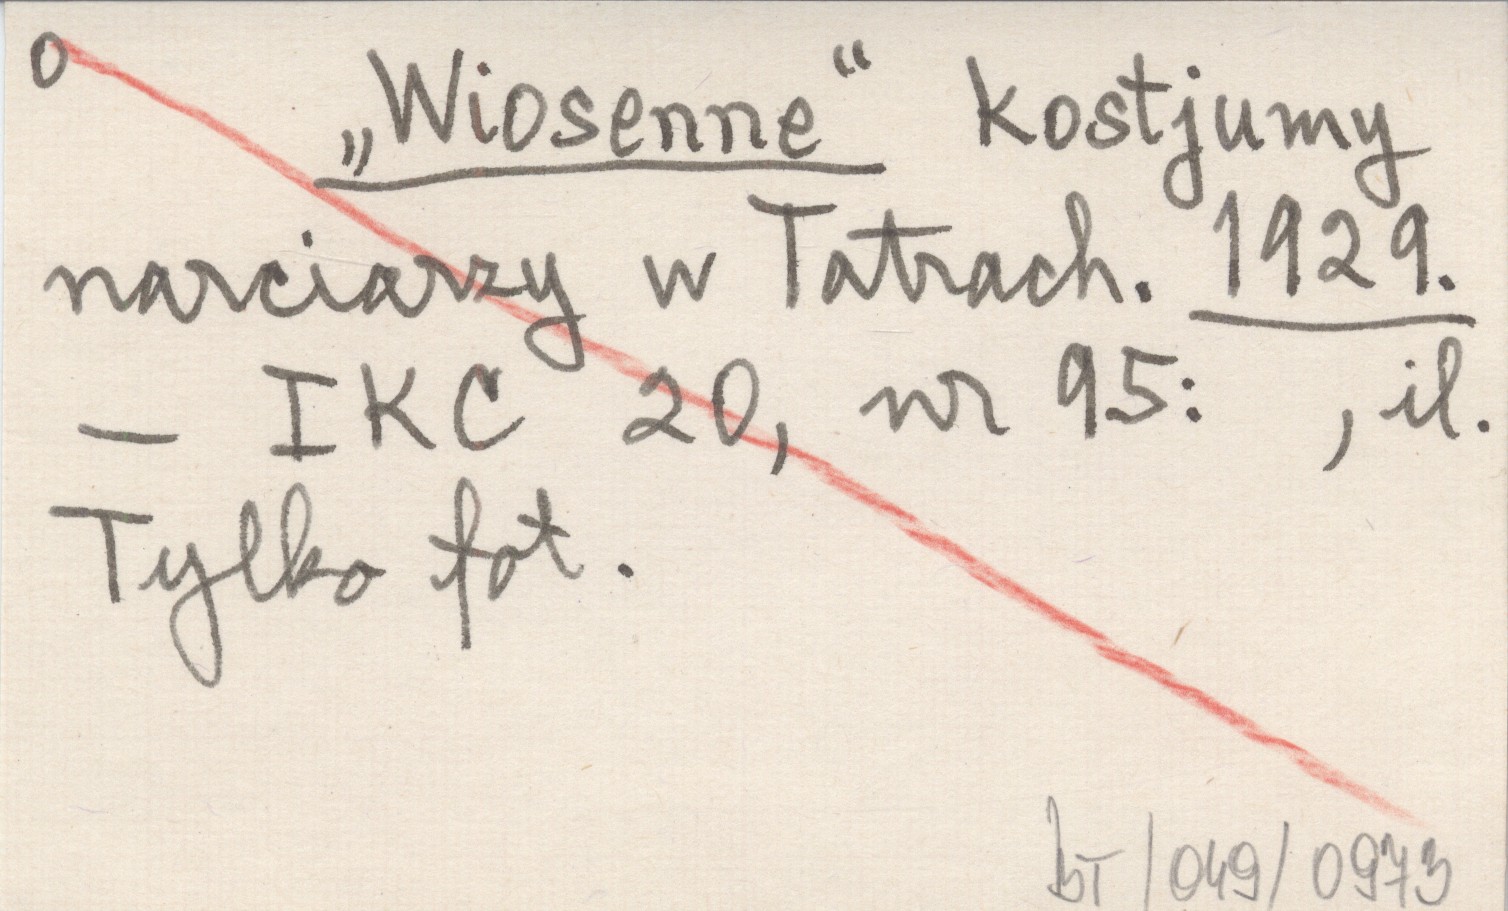 o „Wiosenne“ kostjumy
narciarzy w Tatrach. 1929.
— IKC 20, nr 95: , il.
Tylko fot.
BT/049/0973